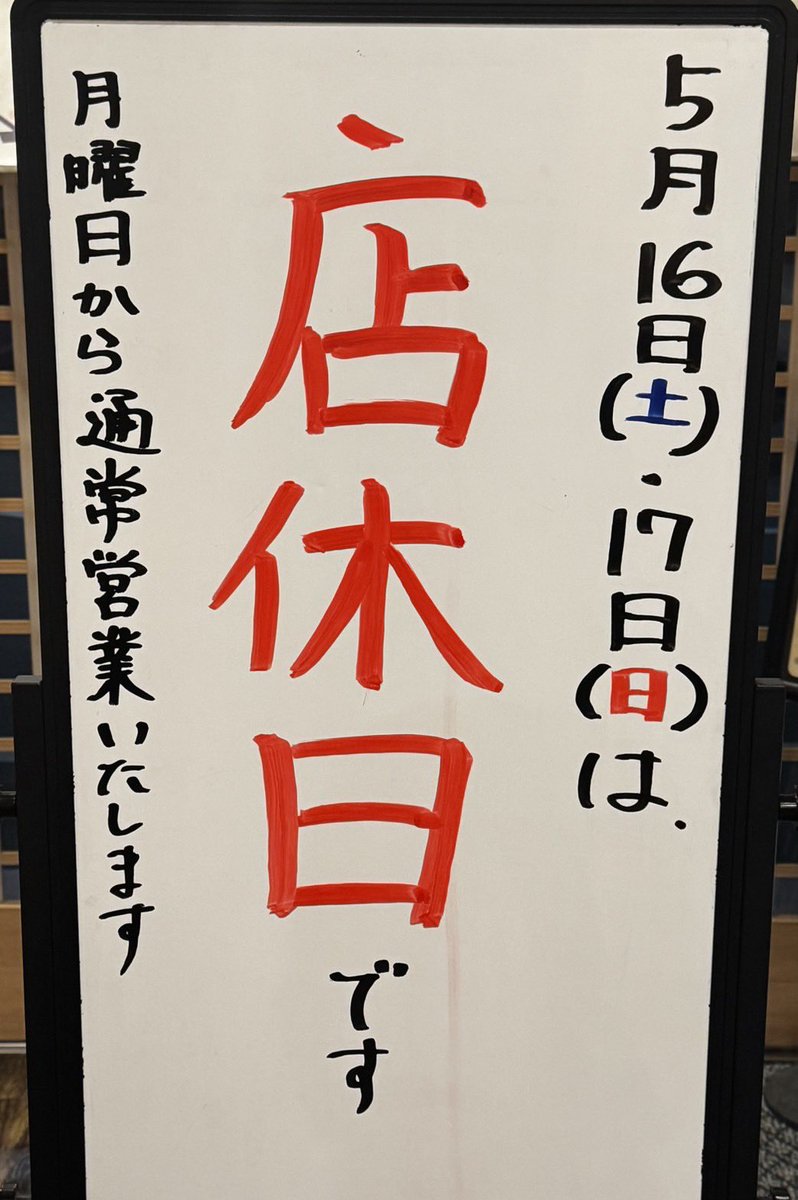 5月16日(土)・17日(日)は、
店休日です
月曜日から通常営業いたします